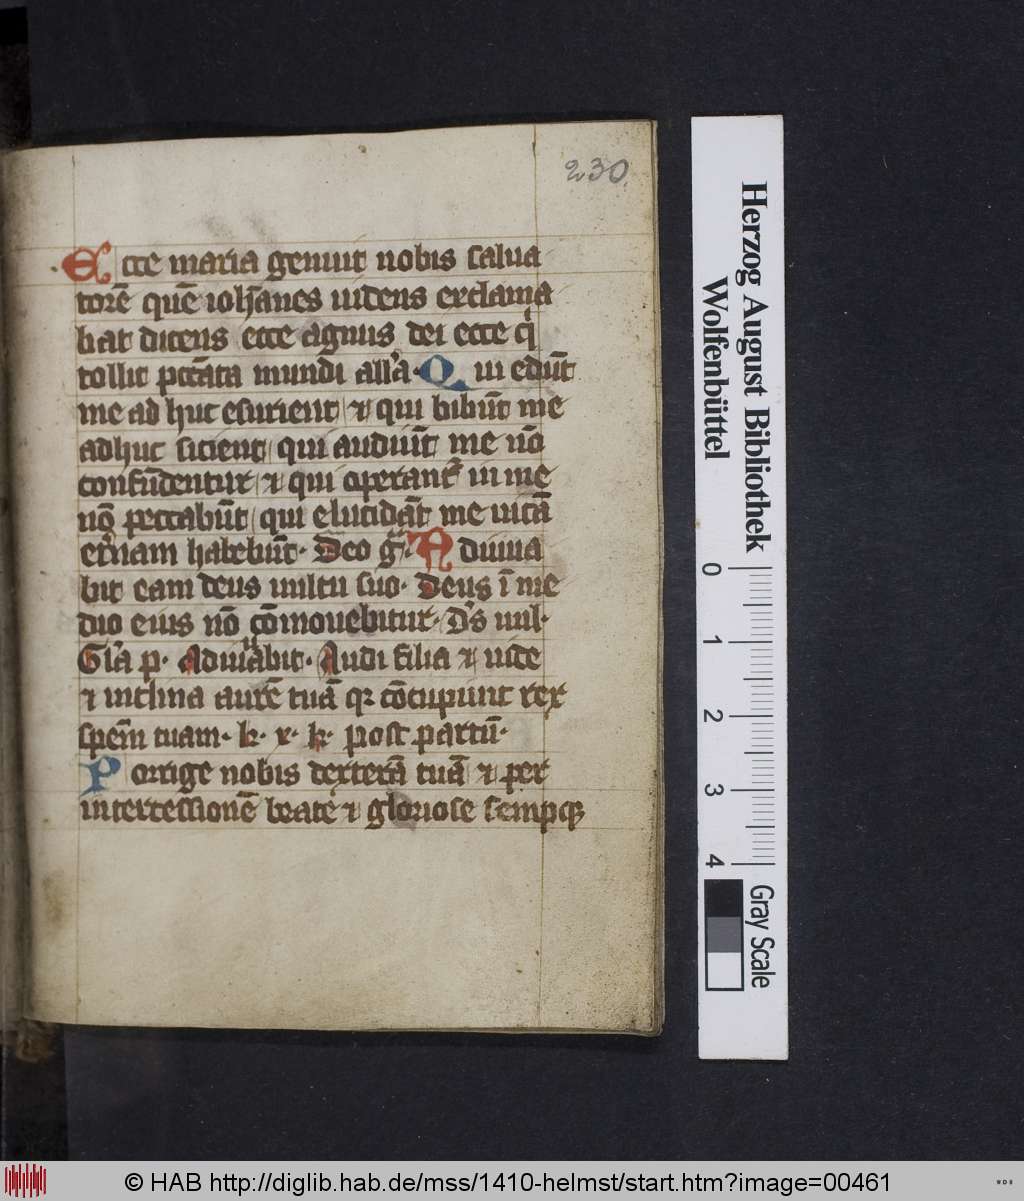 230.
Ecce maria genuit nobis salua
torē quē ioħanes uidens exclama
bat dicens ecce agnus dei ecce q̇
tollit pccāta mundi all'a. Qui edūt
me ad huc esurient ⁊ qui bibūt me
adhuc sicient qui audiūt me nō
confūdentur ⁊ qui operant᷑ in me
nō peccabūt qui elucidāt me uitā
et̓nam habebūt. Deo g̅. Adiuua
bit eam deus uultu suo. Deus ī me
dio eius nō cōmouebitur. D's uul.
Gl'a p. Adiuuabit. Audi filia ⁊ uide
⁊ inclina aurē tuā qꝛ cōcupiuit rex
spēm tuam. k. x. k. post partū.
Porrige nobis dexterā tuā ⁊ per
intercessionē beate ⁊ gloriose sempqꝫ
Herzog August Bibliothek
Wolfenbüttel
0 1 2 3 4
Gray Scale
© HAB http://diglib.hab.de/mss/1410-helmst/start.htm?image=00461